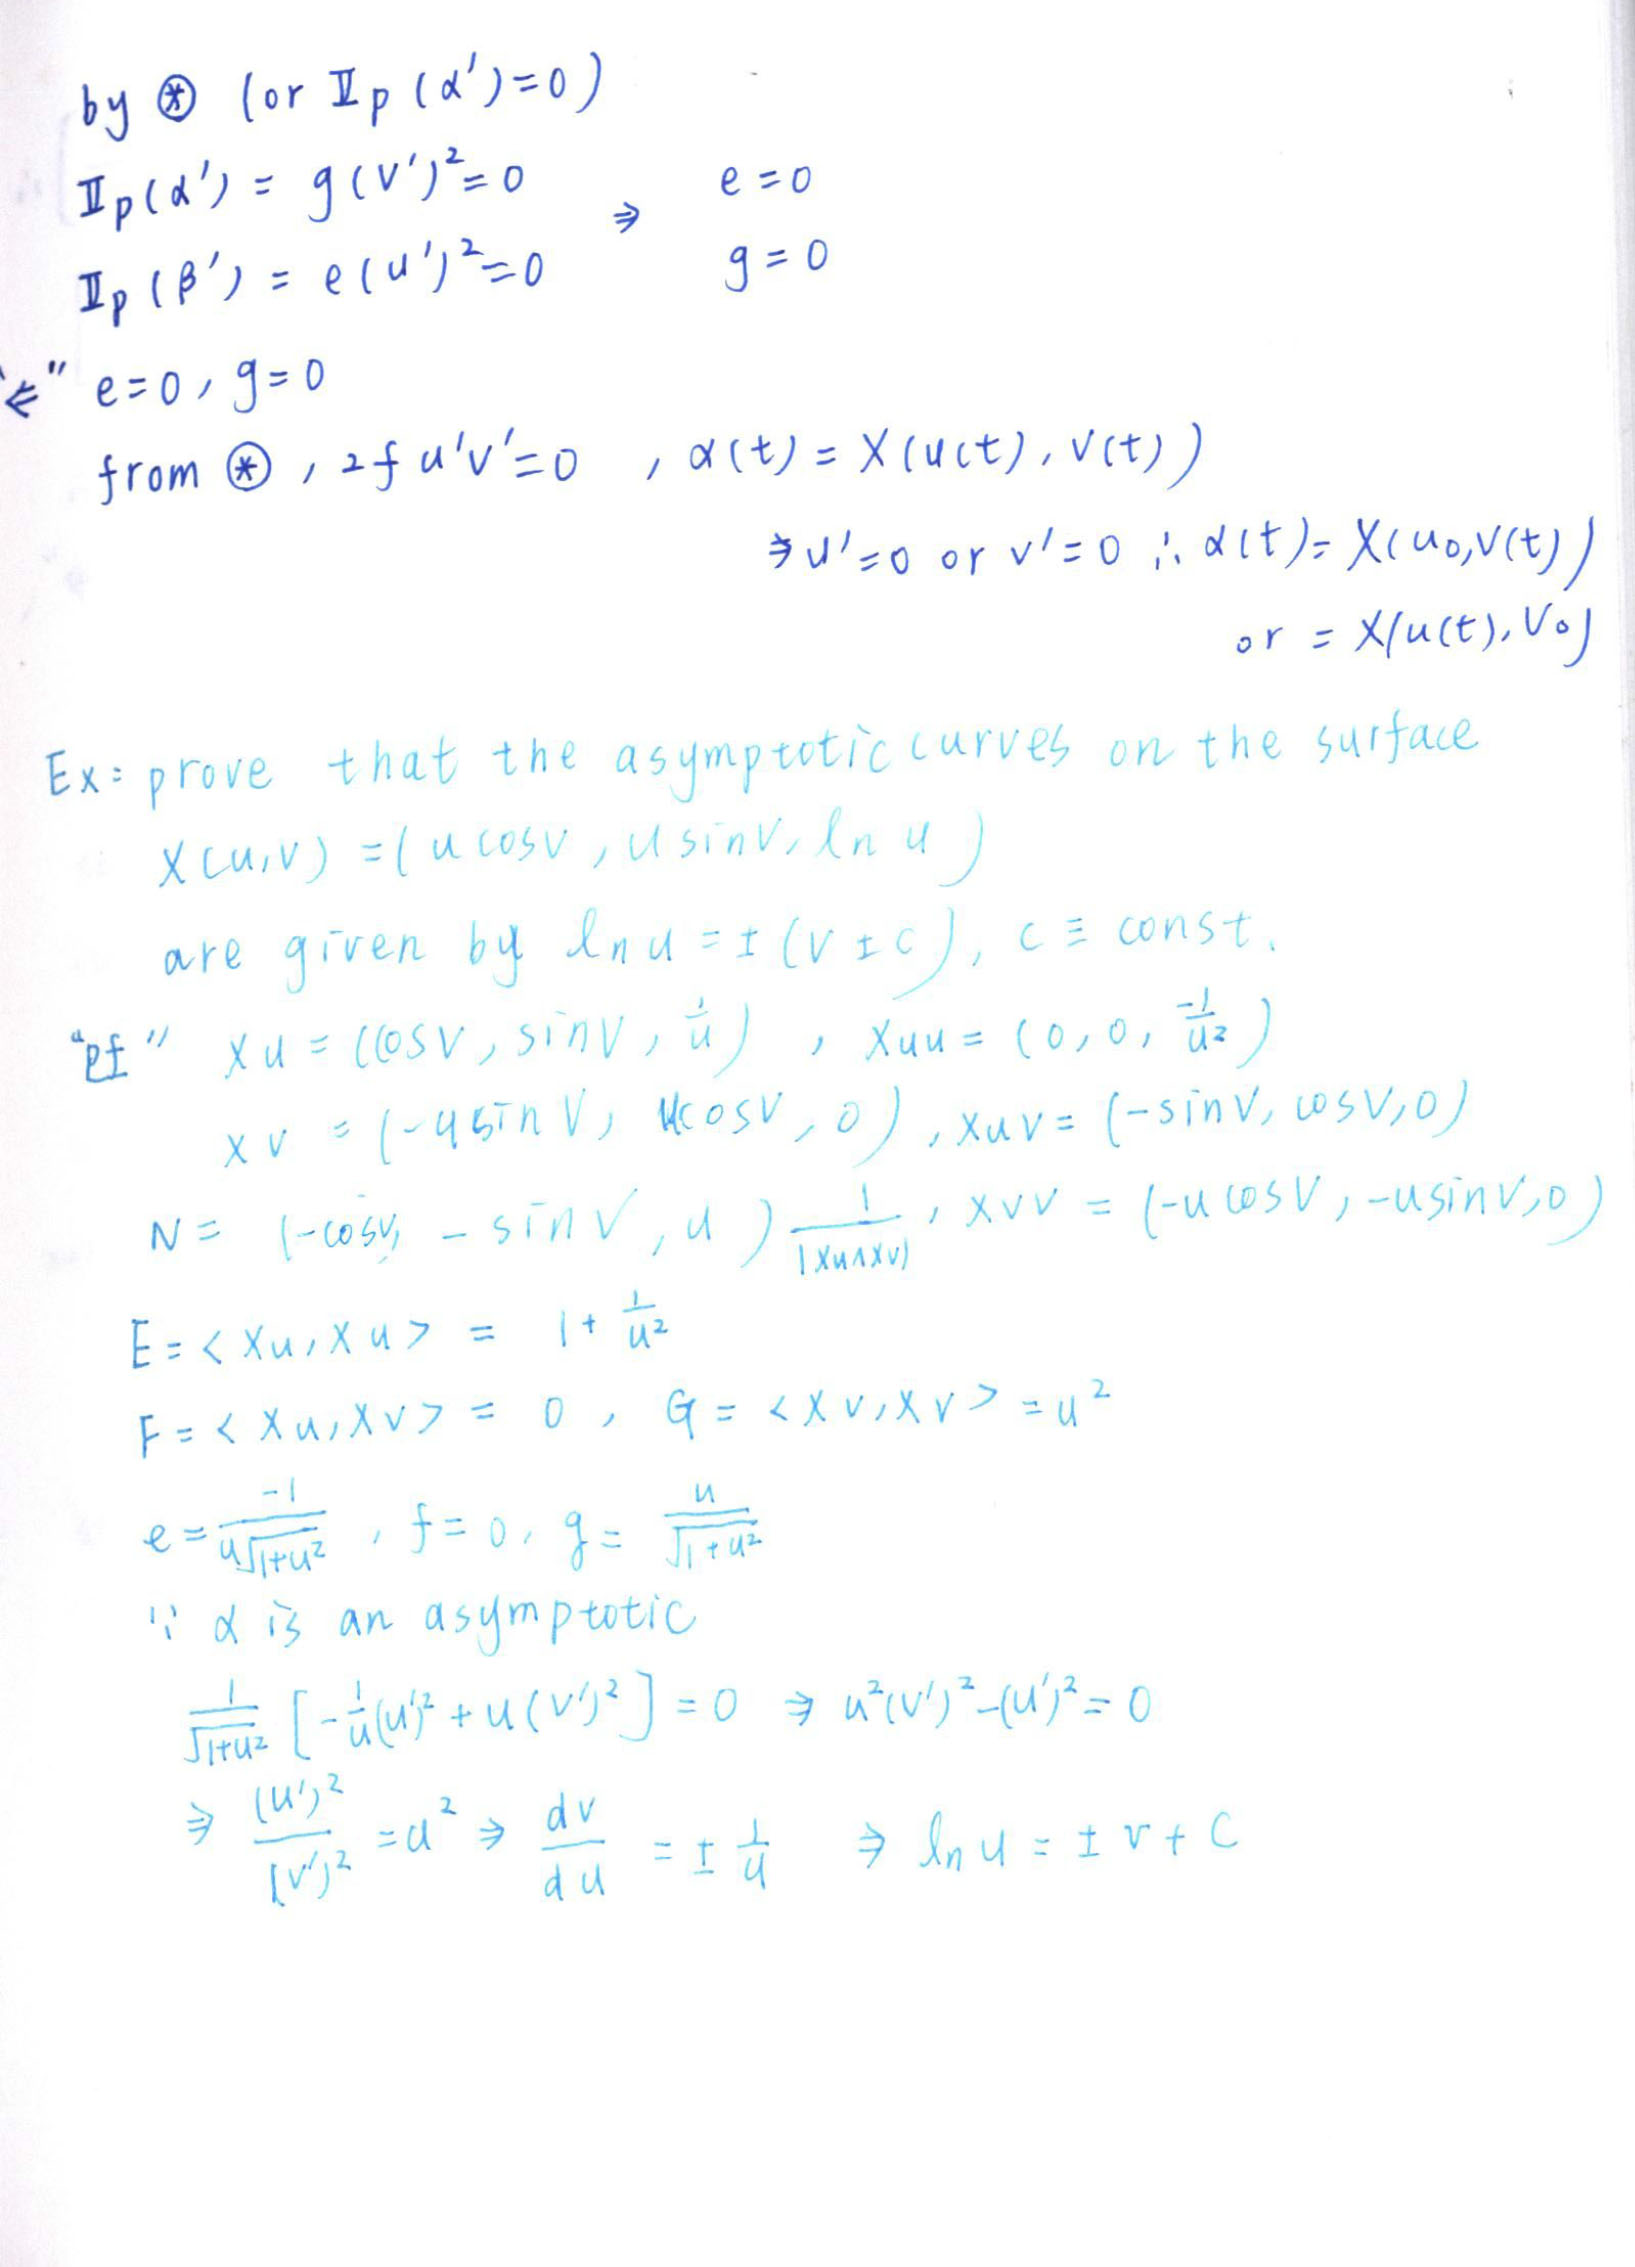 by ⊛ (or Ⅱp(α')=0)
Ⅱp(α') = g(v')²=0 ⇒ e=0
Ⅱp(β') = e(u')²=0 g=0
"⇐" e=0, g=0
from ⊛, 2fu'v'=0 , α(t) = X(u(t), v(t))
⇒ u'=0 or v'=0 ∴ α(t)= X(u₀,v(t))
or = X(u(t), v₀)
Ex: prove that the asymptotic curves on the surface
X(u,v) = (u cosv, u sinv, ln u)
are given by ln u = ±(v±c), c ≡ const.
"pf" Xu = (cosv, sinv, 1/u) , Xuu = (0, 0, -1/u²)
Xv = (-u sinv, u cosv, 0), Xuv = (-sinv, cosv, 0)
N = (-cosv, -sinv, u) 1/|Xu∧Xv| , Xvv = (-u cosv, -u sinv, 0)
E = <Xu, Xu> = 1 + 1/u²
F = <Xu, Xv> = 0 , G = <Xv, Xv> = u²
e = -1/(u√(1+u²)) , f = 0, g = u/√(1+u²)
∵ α is an asymptotic
1/√(1+u²) [-1/u (u')² + u(v')²] = 0 ⇒ u²(v')² - (u')² = 0
⇒ (u')²/(v')² = u² ⇒ dv/du = ± 1/u ⇒ ln u = ± v + C